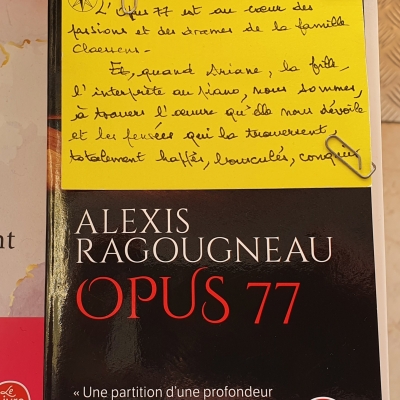 L'Opus 77 est au cœur des
passions et des drames de la famille
Claessens.
Et, quand Ariane, la fille,
l'interprète au piano, nous sommes,
à travers l'œuvre qu'elle nous dévoile
et les pensées qui la traversent,
totalement happés, bousculés, conquis
ALEXIS
RAGOUGNEAU
OPUS 77
nt
« Une partition d'une profondeur
Le